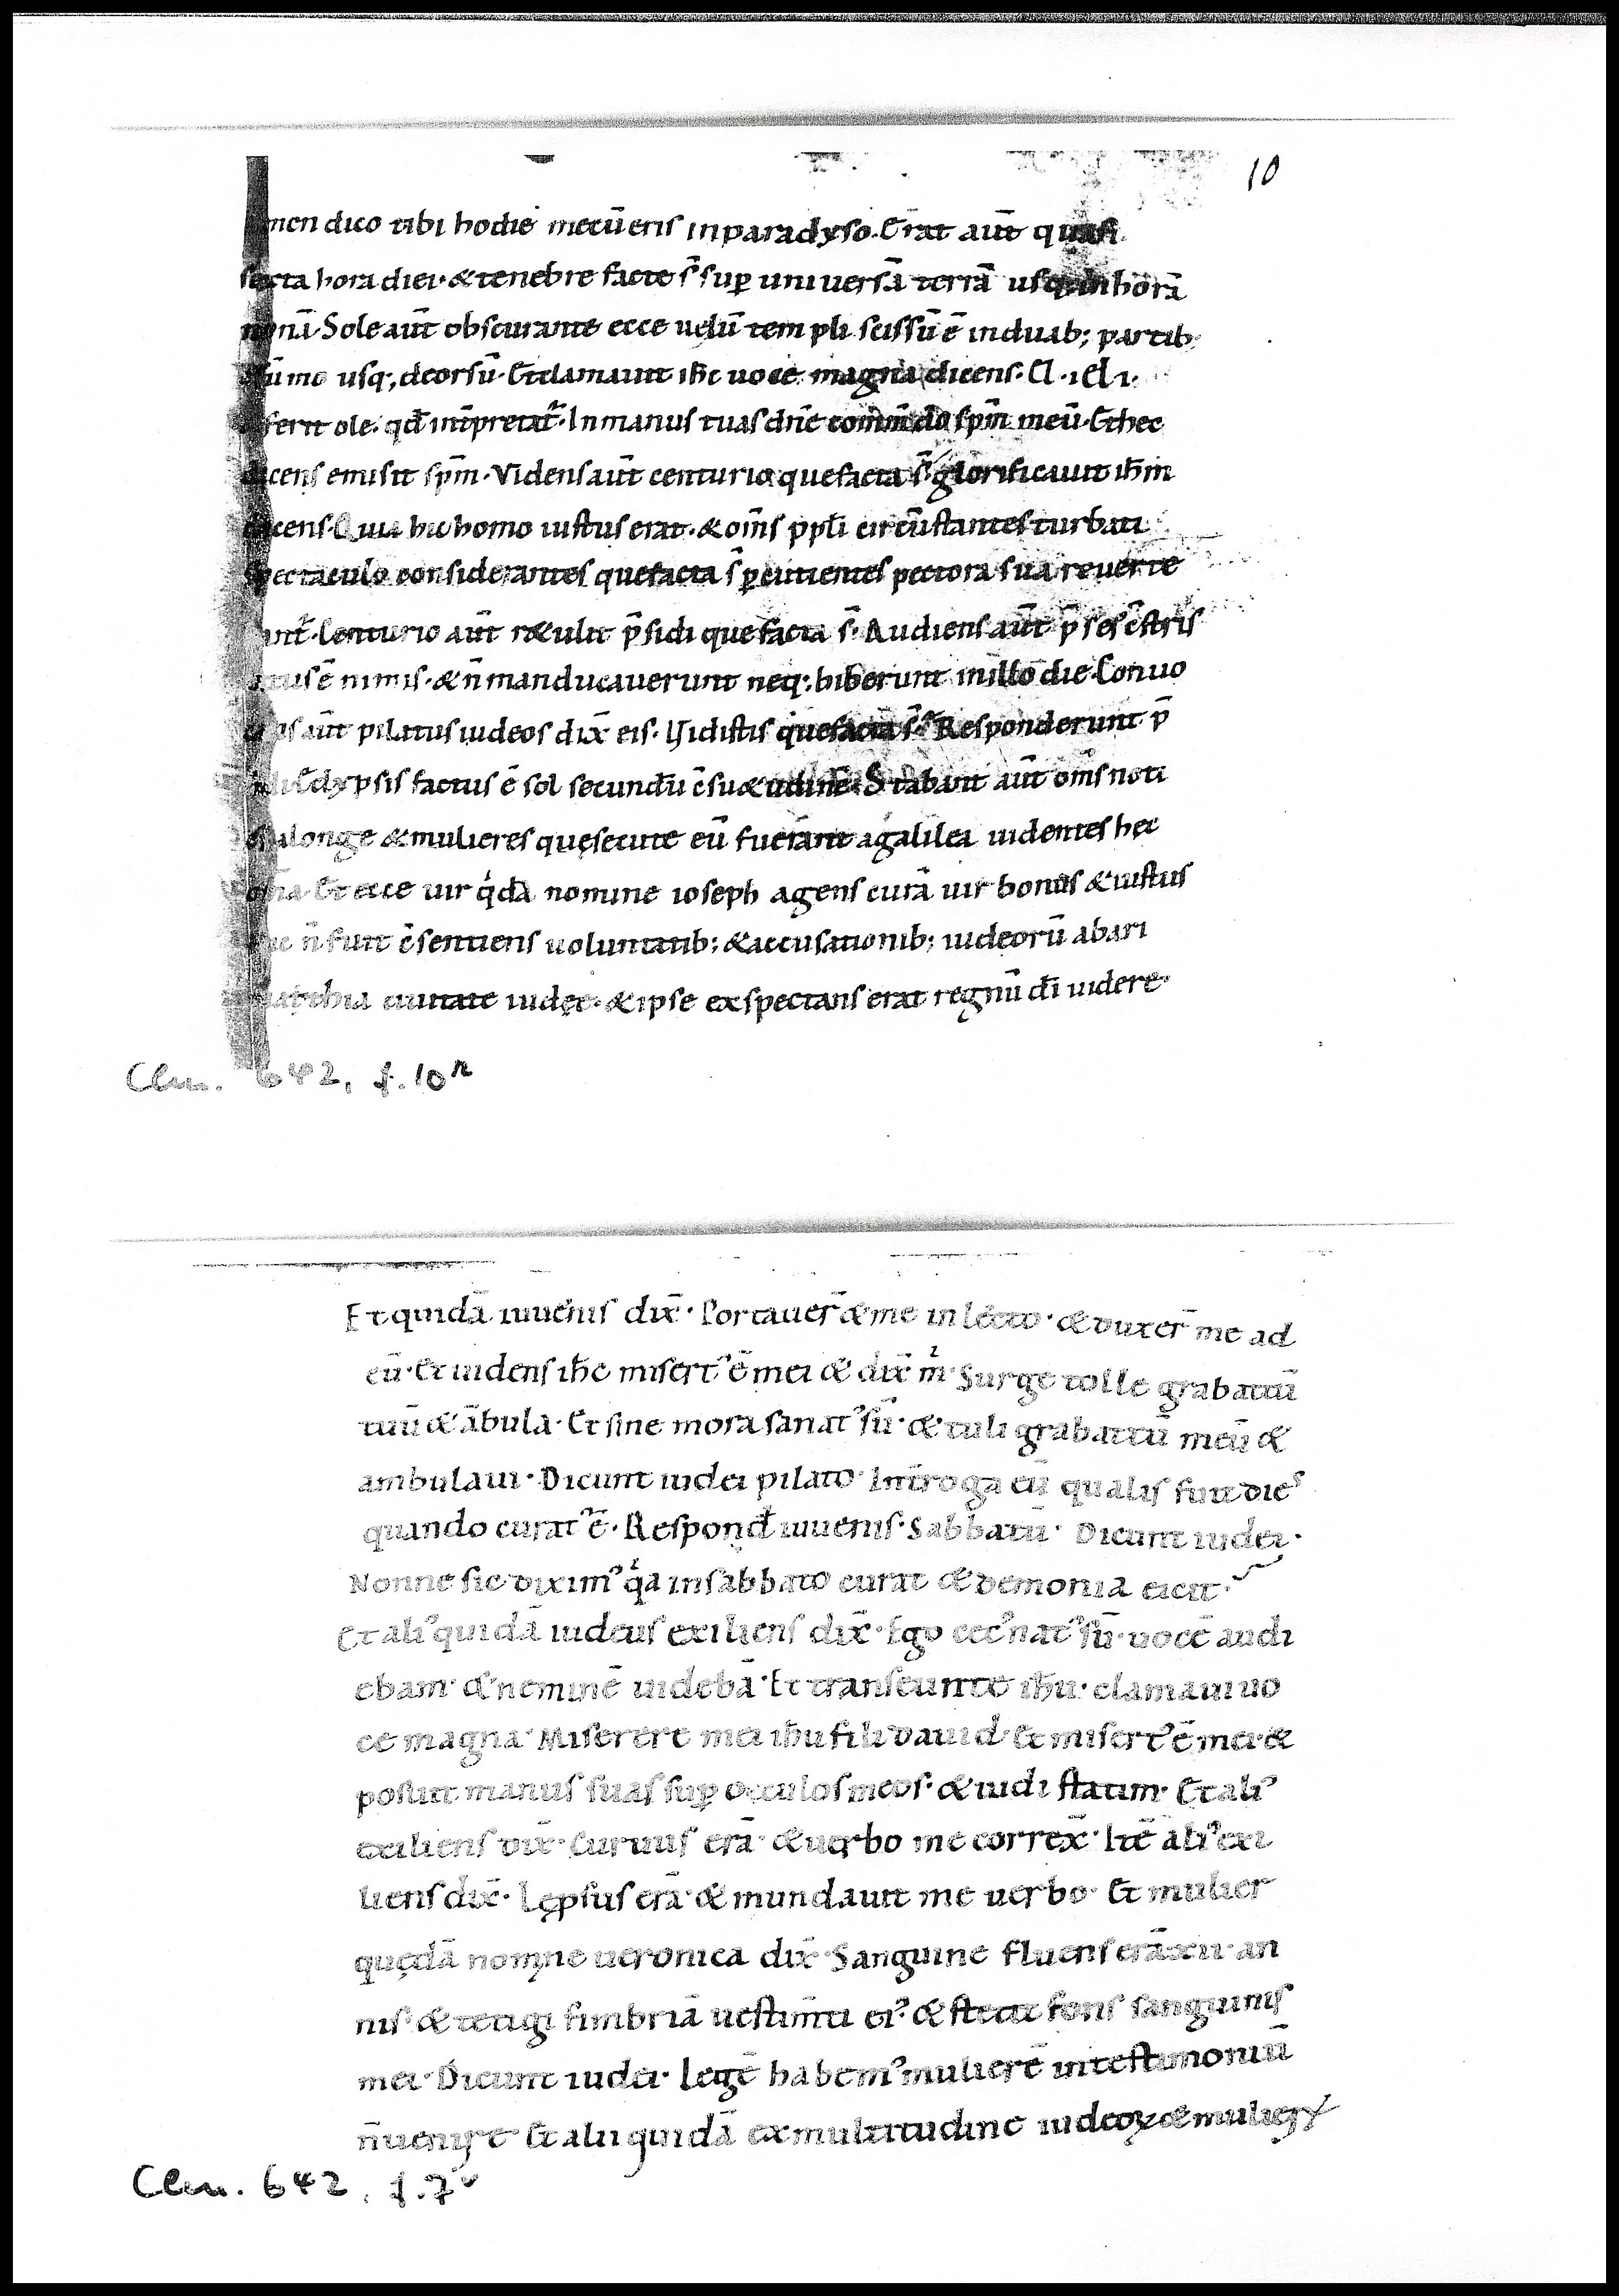 10
men dico tibi hodie mecū eris in paradyso. Erat aūt quasi
sexta hora diei· & tenebre facte s̄ sup̱ uniuersā terrā usq; in horā
nonā· Sole aūt obscurante ecce uelū templi scissū ē in duab; partib;
sūmo usq; deorsū· Et clamauit ih̄c uoce magna dicens· El · i el i·
fetit ole· qd̄ int̄pretat᷑· In manus tuas dn̄e com̄ndo sp̄m meū· Et hec
dicens emisit sp̄m· Videns aūt centurio que facta s̄· glorificauit ih̄m
dicens· Quia hic homo iustus erat· & om̄s pp̄li circūstantes turbati
spectaculo considerantes que facta s̄ ꝑcutientes pectora sua reuerte
bant᷑· Centurio aūt r&ulit p̄sidi que facta s̄· Audiens aūt p̄ses c̄stris
tatus ē nimis· & n̄ manducauerunt neq; biberunt in illo die· Conuo
cans aūt pilatus iudeos dix̄ eis· Vidistis que facta s̄· Responderunt p̄
sidi· Eclypsis factus ē sol secundū c̄su&udinē· Stabant aūt om̄s noti
ei᾽ a longe & mulieres quę secute eū fuerant a galilea uidentes hęc
om̄ia· Et ecce uir q́dā nomine ioseph agens curā uir bonus & iustus
hic n̄ fuit c̄sentiens uoluntatib; & accusationib; iudeorū ab ari
mathia ciuitate iudeę· & ipse exspectans erat regnū dī uidere·
Clm. 642, f. 10r
Et quidā iuuenis dix̄· Portauer̄ & me in lecto· & duxer̄ me ad
eū· Et uidens ih̄c misert᾽ ē mei & dix̄ m̍· Surge tolle grabattū
tuū & ābula· Et sine mora sanat᾽ sū· & tuli grabattū meū &
ambulaui· Dicunt iudei pilato· Int̄roga eū qualis fuit dies
quando curat᾽ ē· Respond̄ iuuenis· Sabbatū· Dicunt iudei·
Nonne sic dixim᾽ q̍a in sabbato curat & demonia eicit·
Et ali᾽ quidā iudeus exiliens dix̄· Ego cec᾽ nat᾽ sū· uocē audi
ebam· & neminē uidebā· Et transeunte ih̄u· clamaui uo
ce magna· Miserere mei ih̄u fili dauid· Et misert᾽ ē mei· &
posuit manus suas sup̱ occulos meos· & uidi statim· Et ali᾽
exiliens dix̄· Curuus erā· & uerbo me correx̄· Itē ali᾽ exi
liens dix̄· Lęp̱sus erā· & mundauit me uerbo· Et mulier
quędā nomine ueronica dix̄· Sanguine fluens erā· xii· an
nis· & tetigi fimbriā uestim̄ti ei᾽ & stetit fons sanguinis
mei· Dicunt iudei· Legē habem᾽ mulierē in testimoniū
n̄ uenire· Et alii quidā ex multitudine iudeoꝝ & mulierꝝ
Clm. 642, f. 7v